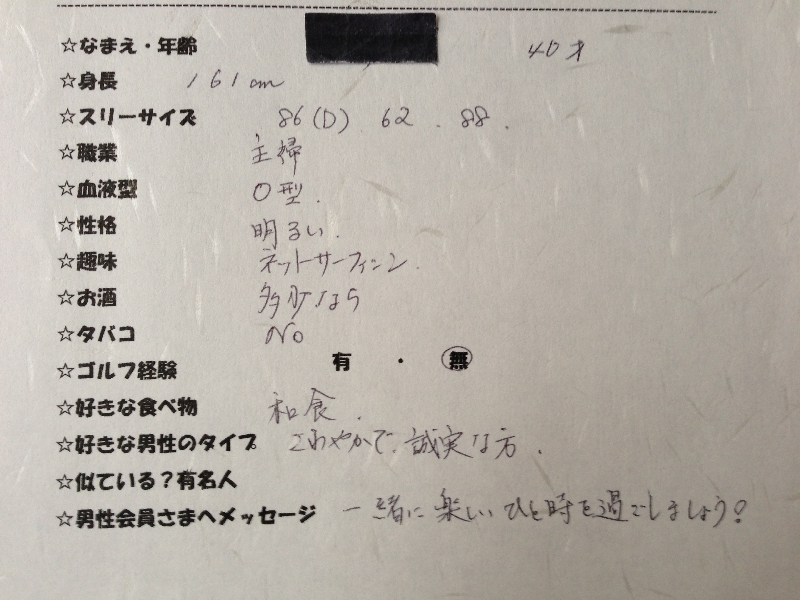 ☆なまえ・年齢 40才
☆身長 161cm
☆スリーサイズ 86(D) 62. 88.
☆職業 主婦
☆血液型 O型.
☆性格 明るい.
☆趣味 ネットサーフィン.
☆お酒 多少なら
☆タバコ No
☆ゴルフ経験 有・無
☆好きな食べ物 和食.
☆好きな男性のタイプ さわやかで、誠実な方.
☆似ている?有名人
☆男性会員さまへメッセージ 一緒に楽しいひと時を過ごしましょう!